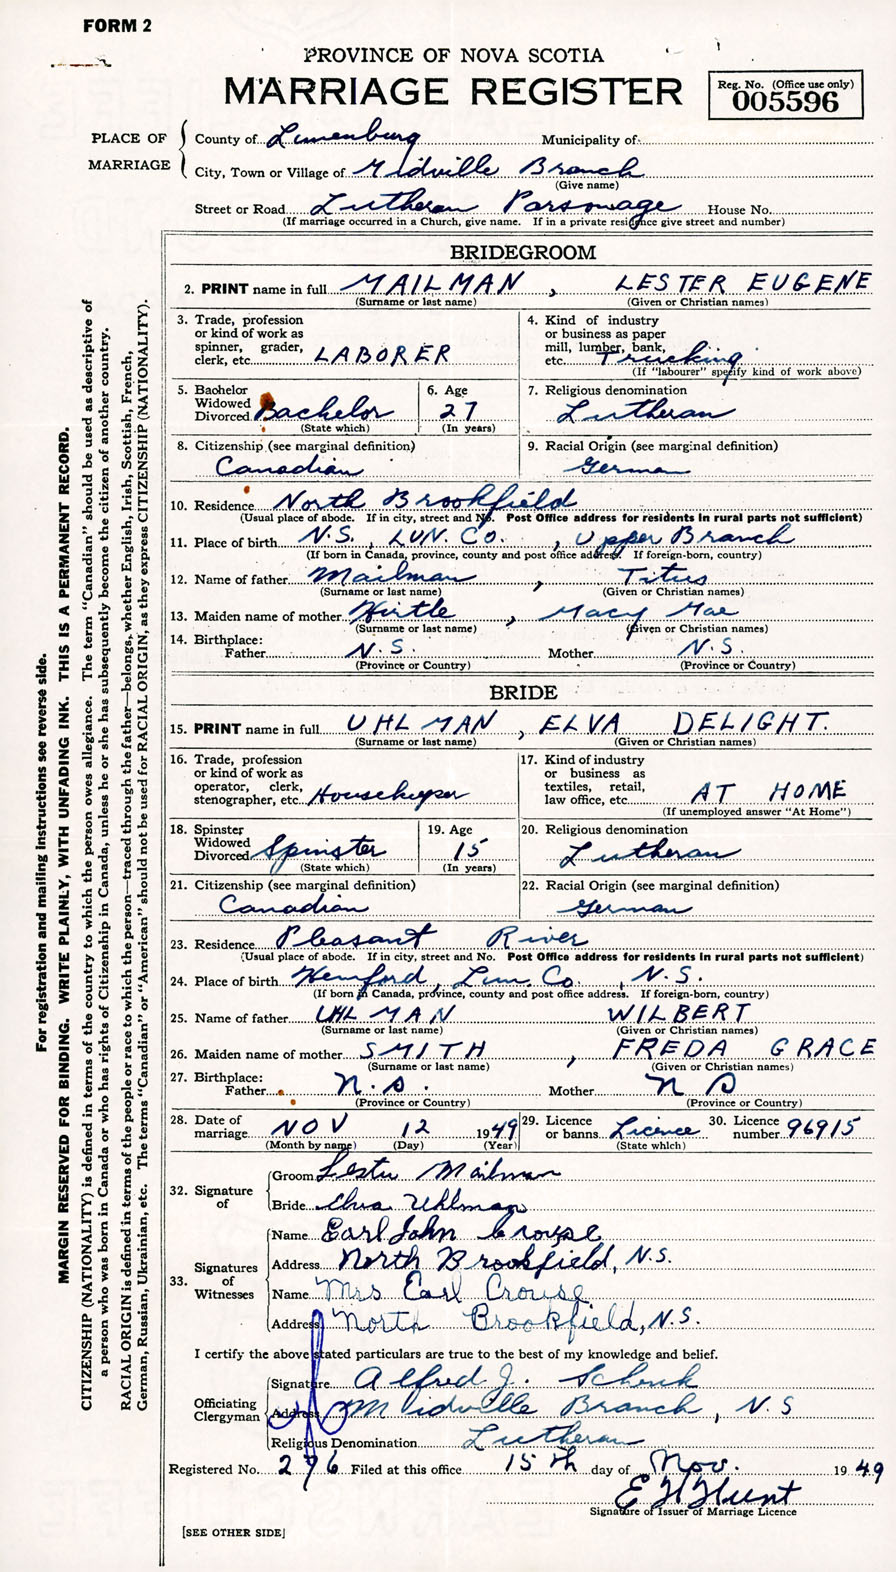 FORM 2
PROVINCE OF NOVA SCOTIA
MARRIAGE REGISTER
Reg. No. (Office use only)
005596
PLACE OF MARRIAGE
County of Lunenburg Municipality of
City, Town or Village of Midville Branch
(Give name)
Street or Road Lutheran Parsonage House No.
(If marriage occurred in a Church, give name. If in a private residence give street and number)
BRIDEGROOM
2. PRINT name in full MAILMAN , LESTER EUGENE
(Surname or last name) (Given or Christian names)
3. Trade, profession
or kind of work as
spinner, grader,
clerk, etc. LABORER
4. Kind of industry
or business as paper
mill, lumber, bank,
etc. Trucking
(If "labourer" specify kind of work above)
5. Bachelor
Widowed
Divorced Bachelor
(State which)
6. Age
27
(In years)
7. Religious denomination
Lutheran
8. Citizenship (see marginal definition)
Canadian
9. Racial Origin (see marginal definition)
German
10. Residence North Brookfield
(Usual place of abode. If in city, street and No. Post Office address for residents in rural parts not sufficient)
11. Place of birth N.S., LUN. CO. , Upper Branch
(If born in Canada, province, county and post office address. If foreign-born, country)
12. Name of father Mailman , Titus
(Surname or last name) (Given or Christian names)
13. Maiden name of mother Hirtle , Macy Mae
(Surname or last name) (Given or Christian names)
14. Birthplace:
Father N.S. Mother N.S.
(Province or Country) (Province or Country)
BRIDE
15. PRINT name in full UHLMAN , ELVA DELIGHT.
(Surname or last name) (Given or Christian names)
16. Trade, profession
or kind of work as
operator, clerk,
stenographer, etc. Housekeeper
17. Kind of industry
or business as
textiles, retail,
law office, etc. AT HOME
(If unemployed answer "At Home")
18. Spinster
Widowed
Divorced Spinster
(State which)
19. Age
15
(In years)
20. Religious denomination
Lutheran
21. Citizenship (see marginal definition)
Canadian
22. Racial Origin (see marginal definition)
German
23. Residence Pleasant River
(Usual place of abode. If in city, street and No. Post Office address for residents in rural parts not sufficient)
24. Place of birth Hemford, Lun. Co. , N.S.
(If born in Canada, province, county and post office address. If foreign-born, country)
25. Name of father UHLMAN WILBERT
(Surname or last name) (Given or Christian names)
26. Maiden name of mother SMITH , FREDA GRACE
(Surname or last name) (Given or Christian names)
27. Birthplace:
Father N.S. Mother N S
(Province or Country) (Province or Country)
28. Date of
marriage NOV 12 1949
(Month by name) (Day) (Year)
29. Licence
or banns Licence
(State which)
30. Licence
number 96915
32. Signature
of
Groom Lester Mailman
Bride Elva Uhlman
33. Signatures
of
Witnesses
Name Earl John Crouse
Address North Brookfield, N.S.
Name Mrs Earl Crouse
Address North Brookfield, N.S.
I certify the above stated particulars are true to the best of my knowledge and belief.
Officiating
Clergyman
Signature Alfred J. Schenk
Address Midville Branch, N.S
Religious Denomination Lutheran
Registered No. 296 Filed at this office 15th day of Nov. 1949
E H Hunt
Signature of Issuer of Marriage Licence
[SEE OTHER SIDE]
For registration and mailing instructions see reverse side.
MARGIN RESERVED FOR BINDING. WRITE PLAINLY, WITH UNFADING INK. THIS IS A PERMANENT RECORD.
CITIZENSHIP (NATIONALITY) is defined in terms of the country to which the person owes allegiance. The term "Canadian" should be used as descriptive of
a person who was born in Canada or who has rights of Citizenship in Canada, unless he or she has subsequently become the citizen of another country.
RACIAL ORIGIN is defined in terms of the people or race to which the person—traced through the father—belongs, whether English, Irish, Scottish, French,
German, Russian, Ukrainian, etc. The terms "Canadian" or "American" should not be used for RACIAL ORIGIN, as they express CITIZENSHIP (NATIONALITY).